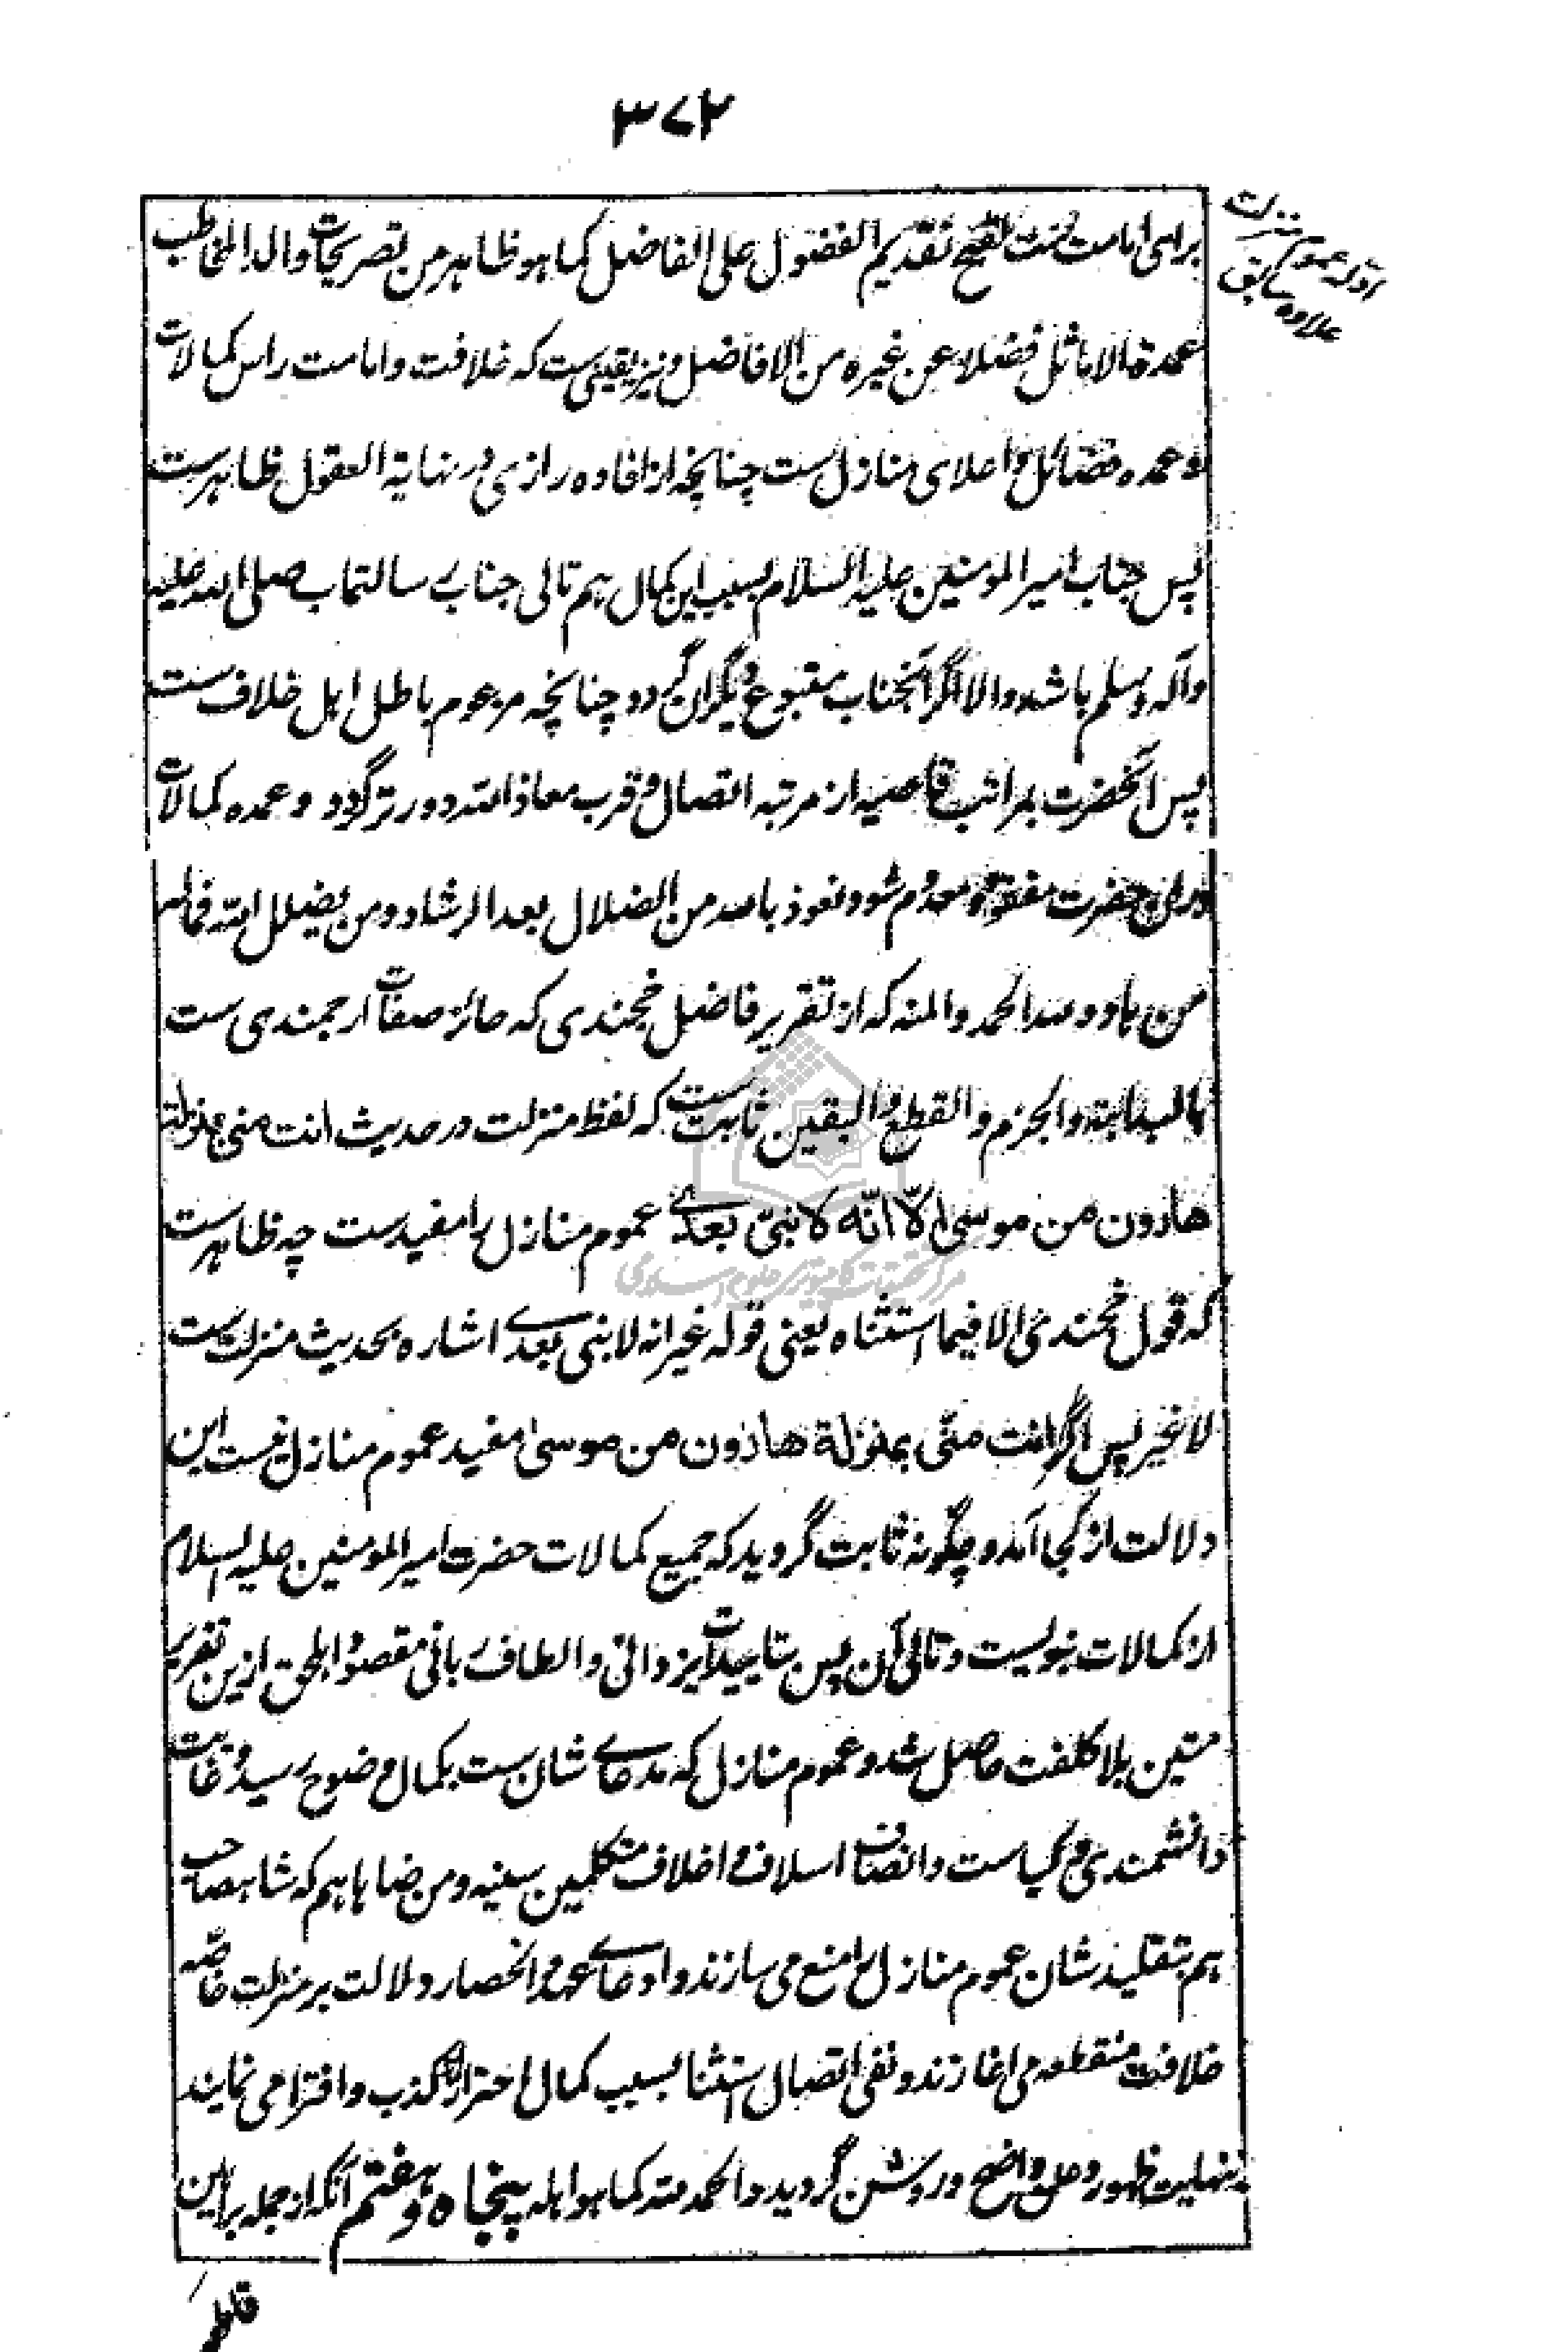 ۳۷۲
ادله عموم منزلت
علاوه سابق
برای امامت ست لقبح تقدیم المفضول علی الفاضل کما هو ظاهر من تصریحات والد المخاطب
عمدة الاماثل فضلا عن غیره من الافاضل و نیز یقینی ست که خلافت و امامت راس کمالات
و عمده فضائل و اعلای منازل ست چنانچه از افاده رازی در نهایة العقول ظاهرست
پس جناب امیر المومنین علیه السلام بسبب این کمال هم تالی جناب رسالتماب صلی الله علیه
وآله وسلم باشد و الا اگر آنجناب متبوع دیگران گردد چنانچه مزعوم باطل اهل خلاف ست
پس آنحضرت بمراتب قاصیه از مرتبه اتصال و قرب معاذ الله دورتر گردد و عمده کمالات
در ان حضرت مفقود و معدوم شود و نعوذ بالله من الضلال بعد الرشاد و من یضلل الله فماله
من هاد و لله الحمد و المنه که از تقریر فاضل خجندی که حائز صفات ارجمندی ست
بالبداهة و الجزم و القطع و الیقین ثابت ست که لفظ منزلت در حدیث انت منی بمنزلة
هارون من موسی الّا انّه لا نبیّ بعدی عموم منازل را مفیدست چه ظاهرست
که قول خجندی الا فیما استثناه یعنی قوله غیر انه لا نبی بعدی اشاره بحدیث منزلت ست
لا غیر پس اگر انت منّی بمنزلة هارون من موسیٰ مفید عموم منازل نیست این
دلالت از کجا آمد و چگونه ثابت گردید که جمیع کمالات حضرت امیر المومنین علیه السلام
از کمالات نبویست و تالی آن پس بتاییدات یزدانی و الطاف ربانی مقصود اهل حق ازین تقریر
متین بلا کلفت حاصل شد و عموم منازل که مدعای شان ست بکمال وضوح رسید و غایت
دانشمندی و کیاست و انصاف اسلاف و اخلاف متکلمین سنیه و من ضاهاهم که شاهصاحب
هم بتقلید شان عموم منازل را منع می سازند و ادعای عهد و انحصار دلالت بر منزلت خاصّه
خلافت منقطعه می اغازند و نفی اتصال استثنا بسبب کمال احتراز از کذب و افترا می نمایند
بنهایت ظهور واضح و روشن گردید و الحمد لله کما هو اهله پنجاه و هفتم آنکه از جمله براهین